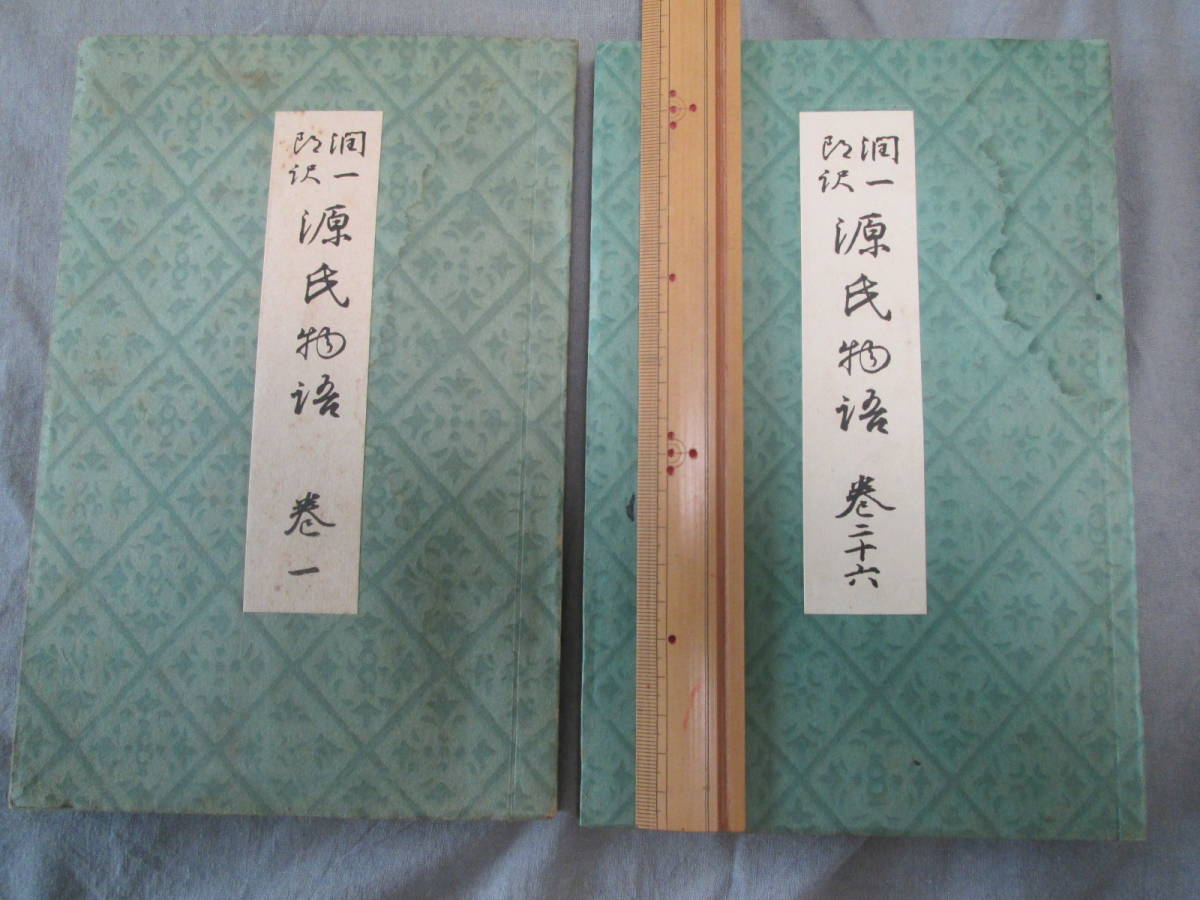 潤一
郎訳
源氏物語 巻一
潤一
郎訳
源氏物語 巻二十六